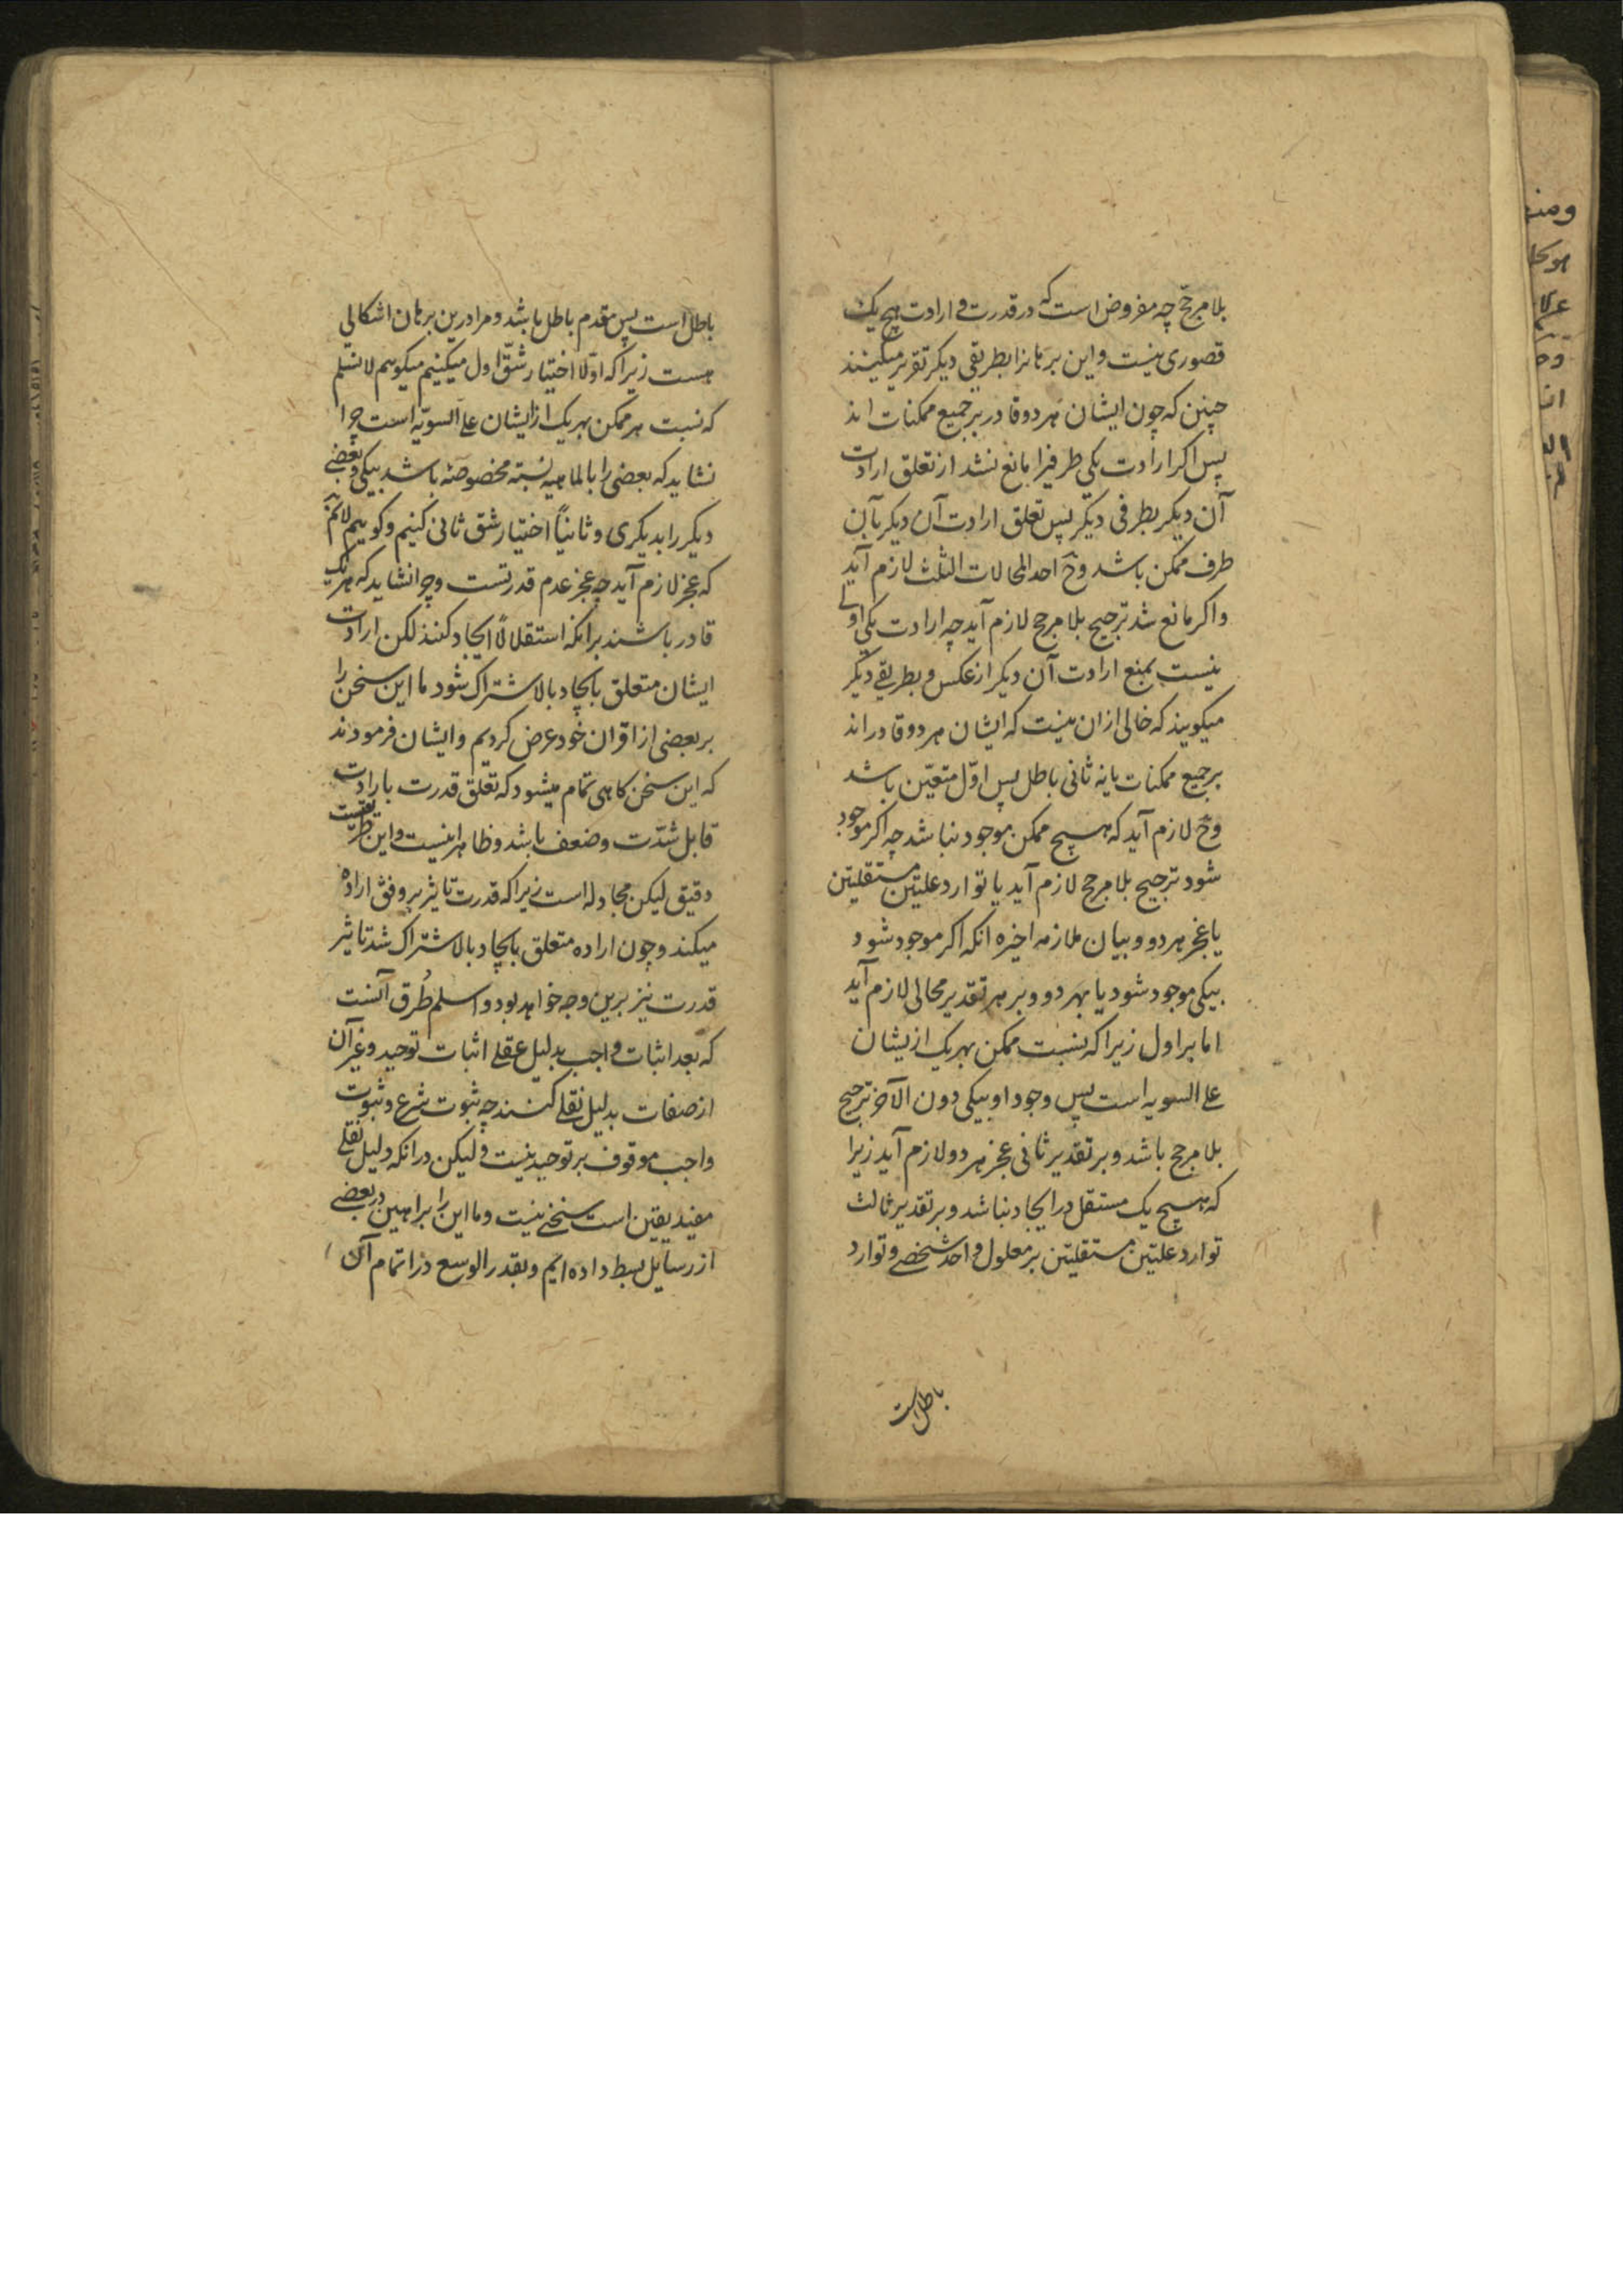 بلا مرجّح چه مفروض است که در قدرت و ارادت هیچ یک
قصوری نیست و این برهانرا بطریقی دیکر تقریر میکنند
چنین که چون ایشان هر دو قادر بر جمیع ممکنات اند
پس اکر ارادت یکی طرفیرا مانع نشد از تعلق ارادت
آن دیکر بطرفی دیکر پس تعلق ارادت آن دیکر بآن
طرف ممکن باشد وح احد المحالات الثلث لازم آید
و اکر مانع شد ترجیح بلا مرجح لازم آید چه ارادت یکی اولی
نیست بمنع ارادت آن دیکر از عکس و بطریقی دیکر
میکویند که خالی ازان نیست که ایشان هر دو قادر اند
بر جمیع ممکنات یا نه ثانی باطل پس اوّل متعیّن باشد
وح لازم آید که هیچ ممکن موجود نباشد چه اکر موجود
شود ترجیح بلا مرجح لازم آید یا توارد علتین مستقلتین
یا عجز هر دو و بیان ملازمه اخیره انکه اکر موجود شود
بیکی موجود شود یا بهر دو و بر هر تقدیر محالی لازم آید
اما بر اول زیرا که نسبت ممکن بهر یک ازیشان
علی السویه است پس وجود او بیکی دون الآخر ترجیح
بلا مرجح باشد و بر تقدیر ثانی عجز هر دو لازم آید زیرا
که هیچ یک مستقل در ایجاد نباشد و بر تقدیر ثالث
توارد علتین مستقلتین بر معلول واحد شخصی و توارد
باطل است
باطل است پس مقدم باطل باشد و مرا درین برهان اشکالی
هست زیرا که اوّلا اختیار شقّ اول میکنیم میکوییم لا نسلم
که نسبت هر ممکن بهر یک از ایشان علی السویّه است چرا
نشاید که بعضی را بالماهیه نسبة مخصوصة باشد بیکی و بعضی
دیکر را بدیکری و ثانیاً اختیار شق ثانی کنیم و کوییم لانم
که عجز لازم آید چه عجز عدم قدرتست و چرا نشاید که هر یک
قادر باشند برانکه استقلالاً ایجاد کنند لکن ارادت
ایشان متعلق بایجاد بالاشتراک شود ما این سخن را
بر بعضی از اقران خود عرض کردیم و ایشان فرمودند
که این سخن کاهی تمام میشود که تعلق قدرت بارادت
قابل شدّت و ضعف باشد و ظاهرا نیست و این طریقیست
دقیق لیکن مجادله است زیرا که قدرت تاثیر بر وفق اراده
میکند و چون اراده متعلق بایجاد بالاشتراک شد تاثیر
قدرت نیز برین وجه خواهد بود و اسلم طُرق آنست
که بعد اثبات واجب بدلیل عقلی اثبات توحید و غیر آن
از صفات بدلیل نقلی کنند چه ثبوت شرع و ثبوت
واجب موقوف بر توحید نیست و لیکن در انکه دلیل نقلی
مفید یقین است سخنی نیست و ما این را براهین در بعضی
از رسایل بسط داده ایم و بقدر الوسع در اتمام آن